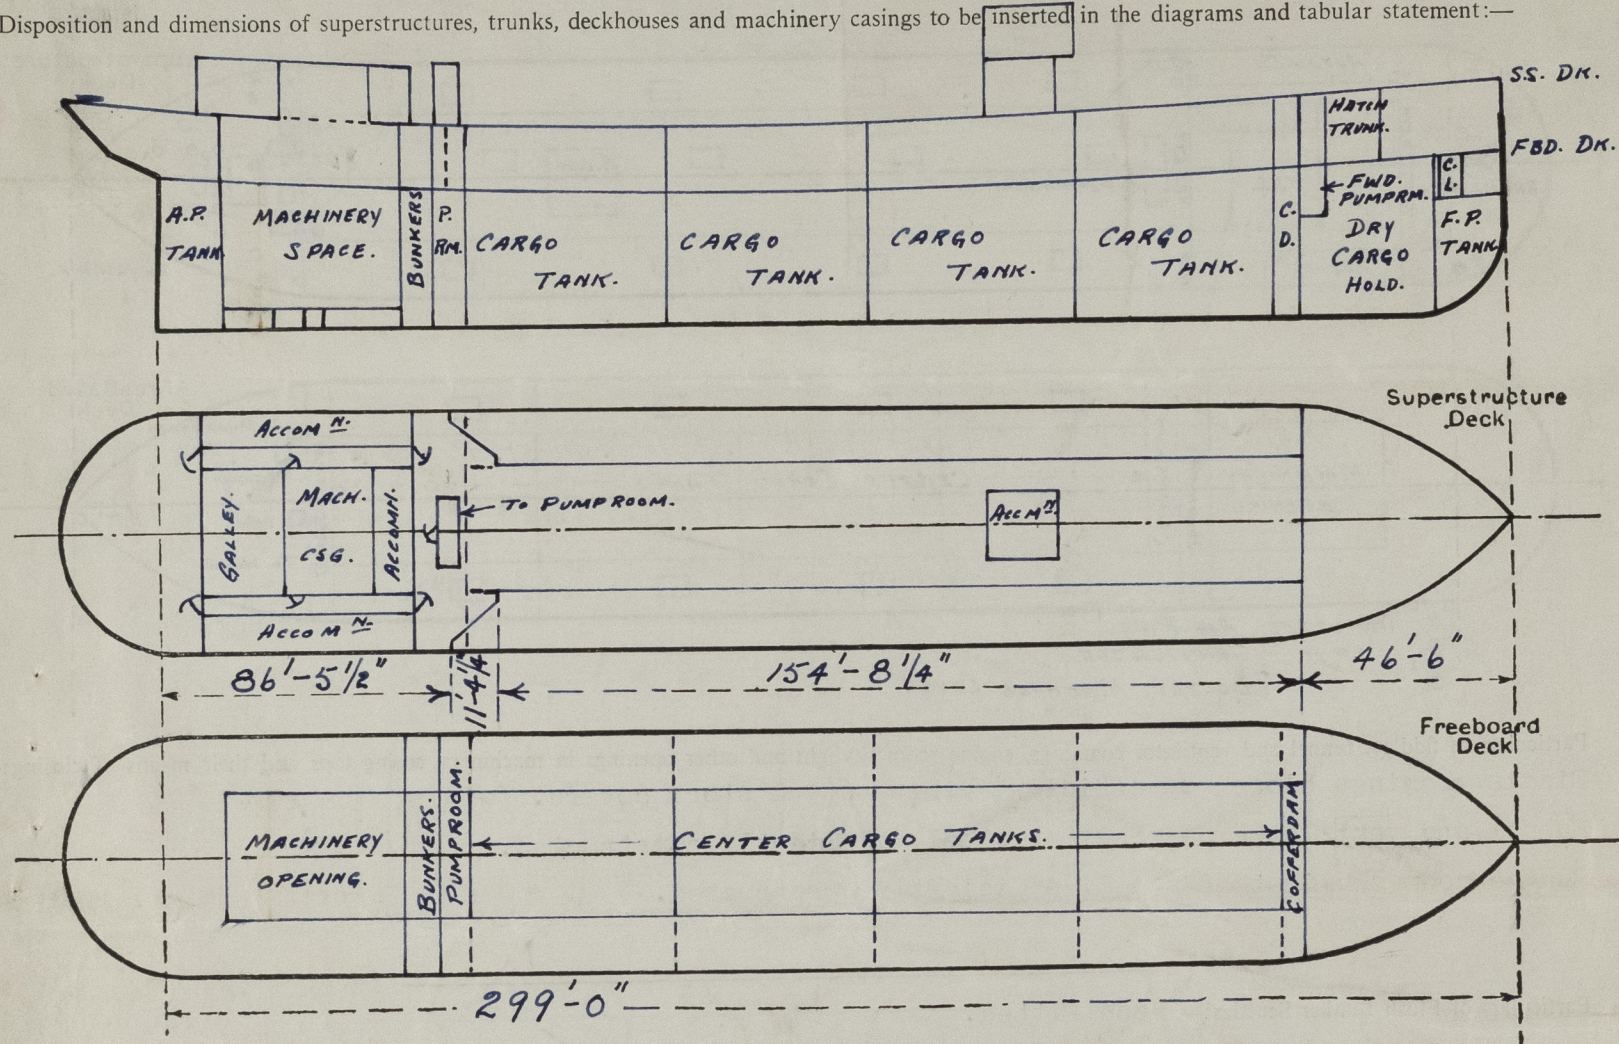 Disposition and dimensions of superstructures, trunks, deckhouses and machinery casings to be inserted in the diagrams and tabular statement:—
S.S. DK.
HATCH
TRUNK.
FBD. DK.
C.
L.
FWD.
PUMPRM.
A.P.
TANK
MACHINERY
SPACE.
BUNKERS
P.
RM.
CARGO
TANK.
CARGO
TANK.
CARGO
TANK.
CARGO
TANK.
C.
D.
DRY
CARGO
HOLD.
F.P.
TANK
Superstructure
Deck
ACCOM N.
GALLEY.
MACH.
CSG.
ACCOMN.
TO PUMPROOM.
ACCM N.
ACCOM N.
86'-5 1/2"
11'-4 1/4"
154'-8 1/4"
46'-6"
Freeboard
Deck
MACHINERY
OPENING.
BUNKERS.
PUMPROOM.
CENTER CARGO TANKS.
COFFERDAM.
299'-0"